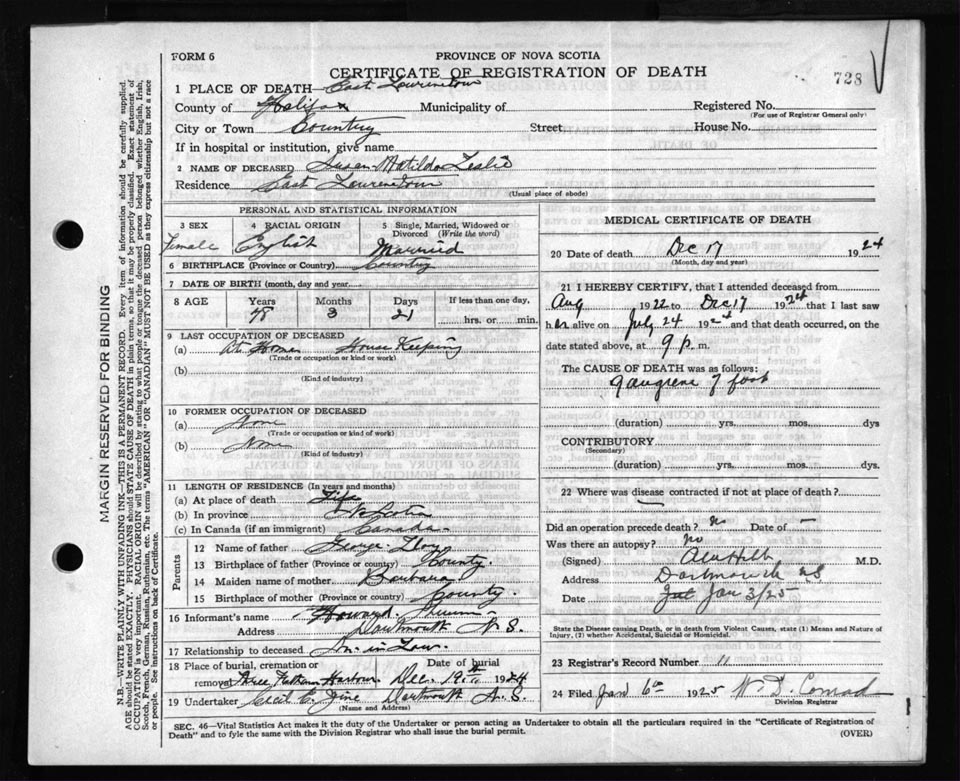 FORM 6
PROVINCE OF NOVA SCOTIA
728
CERTIFICATE OF REGISTRATION OF DEATH
1 PLACE OF DEATH— East Lawrencetown
County of Halifax Municipality of Registered No.
(For use of Registrar General only)
City or Town Country Street House No.
If in hospital or institution, give name
2 NAME OF DECEASED Susan Matilda Leslie
Residence East Lawrencetown
(Usual place of abode)
PERSONAL AND STATISTICAL INFORMATION
3 SEX 4 RACIAL ORIGIN 5 Single, Married, Widowed or Divorced (Write the word)
Female English Married
6 BIRTHPLACE (Province or Country) Country
7 DATE OF BIRTH (month, day and year)
8 AGE Years Months Days If less than one day,
78 3 21 hrs. or min.
9 LAST OCCUPATION OF DECEASED
(a) At Home House Keeping
(Trade or occupation or kind or work)
(b)
(Kind of industry)
10 FORMER OCCUPATION OF DECEASED
(a) None
(Trade or occupation or kind of work)
(b) None
(Kind of industry)
11 LENGTH OF RESIDENCE (In years and months)
(a) At place of death Life
(b) In province N. Scotia
(c) In Canada (if an immigrant) Canada
Parents
12 Name of father George
13 Birthplace of father (Province or country) County
14 Maiden name of mother Barbara
15 Birthplace of mother (Province or country) County
16 Informant's name Howard
Address Dartmouth N. S.
17 Relationship to deceased in Law
18 Place of burial, cremation or removal Date of burial
Three Fathom Harbour Dec. 19th 1924
19 Undertaker Cecil E. Dartmouth N. S.
(Name and Address)
MEDICAL CERTIFICATE OF DEATH
20 Date of death Dec 17 1924
(Month, day and year)
21 I HEREBY CERTIFY, that I attended deceased from
Aug 1922 to Dec 17 1924 that I last saw
her alive on July 24 1924 and that death occurred, on the
date stated above, at 9 p. m.
The CAUSE OF DEATH was as follows:
Gangrene of foot
(duration) yrs. mos. dys
CONTRIBUTORY
(Secondary)
(duration) yrs. mos. dys.
22 Where was disease contracted if not at place of death?
Did an operation precede death? no Date of —
Was there an autopsy? no
(Signed) M.D.
Address Dartmouth NS
Date Jan 3/25
State the Disease causing Death, or in death from Violent Causes, state (1) Means and Nature of Injury, (2) whether Accidental, Suicidal or Homicidal.
23 Registrar's Record Number 11
24 Filed Jan 6th 1925 W. D. Conrad
Division Registrar
SEC. 46—Vital Statistics Act makes it the duty of the Undertaker or person acting as Undertaker to obtain all the particulars required in the "Certificate of Registration of
Death" and to fyle the same with the Division Registrar who shall issue the burial permit. (OVER)
MARGIN RESERVED FOR BINDING
N.B.—WRITE PLAINLY WITH UNFADING INK—THIS IS A PERMANENT RECORD. Every item of information should be carefully supplied.
AGE should be stated EXACTLY. PHYSICIANS should STATE CAUSE OF DEATH in plain terms, so that it may be properly classified. Exact statement of
OCCUPATION is very important. RACIAL ORIGIN will be described by stating to what people or tongue the deceased person belonged whether English, Irish,
Scotch, French, German, Russian, Ruthenian, etc. The terms "AMERICAN" OR "CANADIAN" MUST NOT BE USED as they express citizenship but not a race
or people. See instructions on back of Certificate.